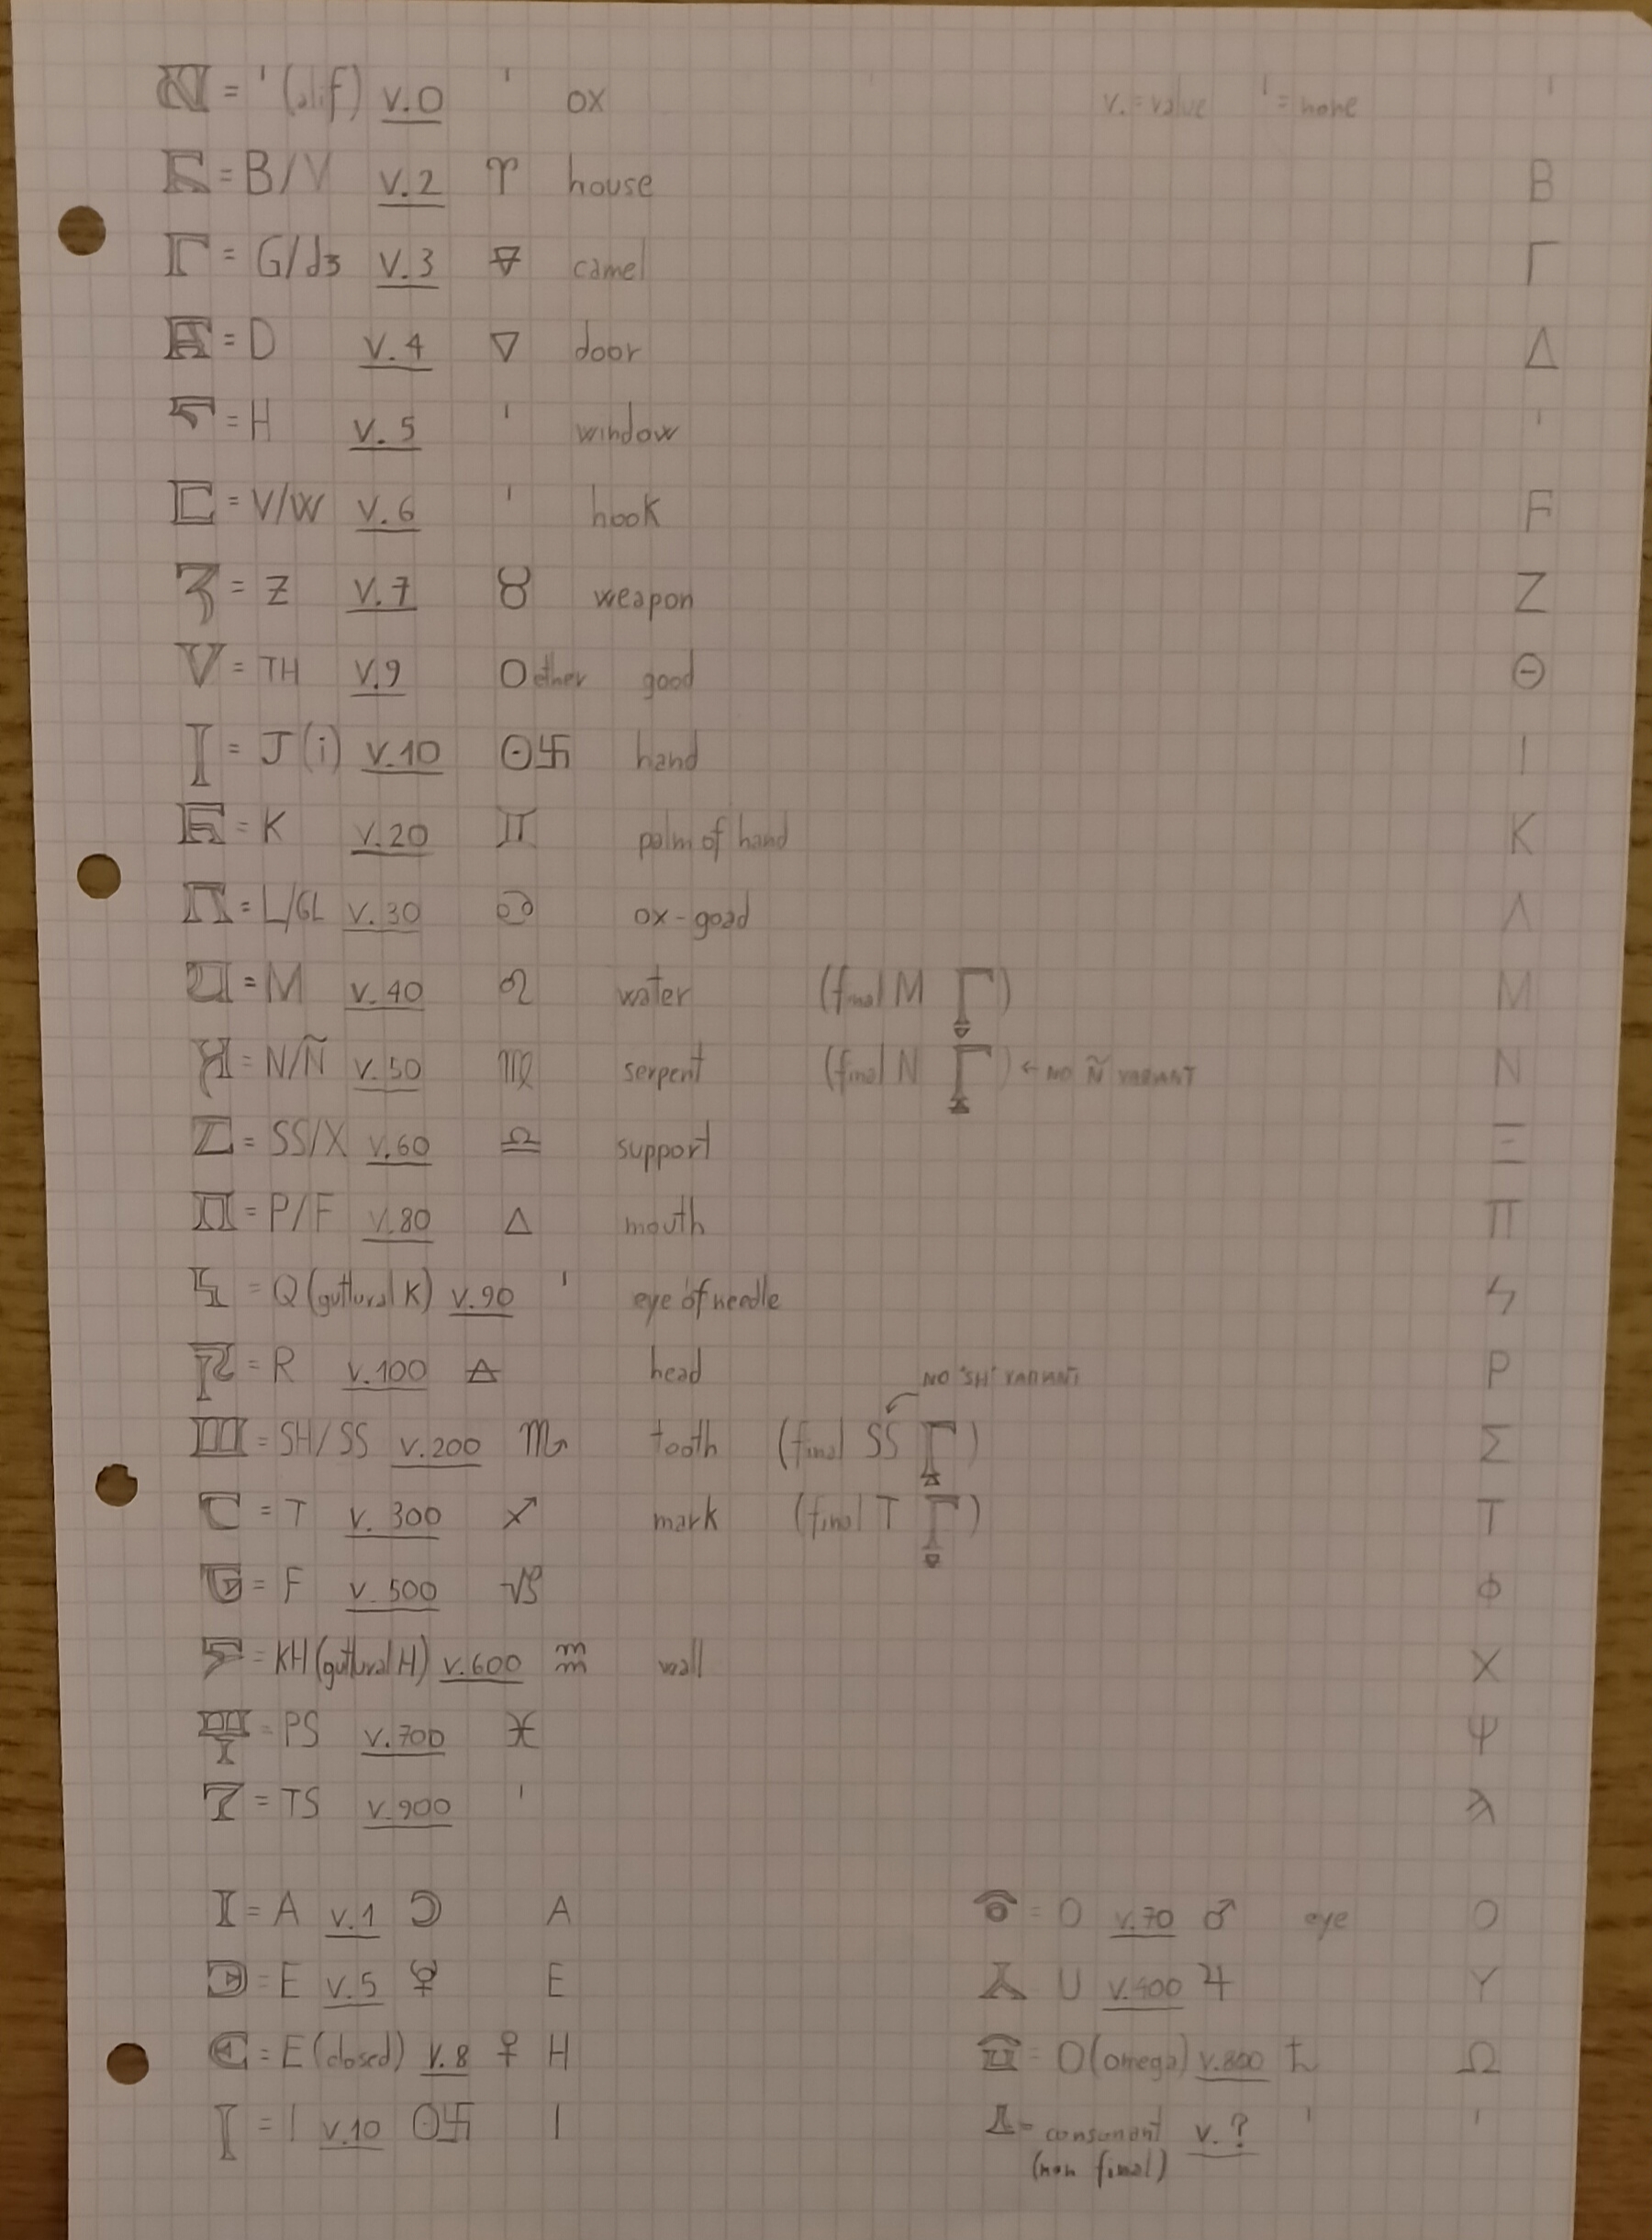 = ' (alif) v.0 ' ox v.=value '=none '
= B/V v.2 ♈ house B
Γ = G/dʒ v.3 🜃 camel Γ
= D v.4 ▽ door Δ
= H v.5 ' window '
= V/W v.6 ' hook F
= Z v.7 ♉ weapon Z
V = TH v.9 O ether good Θ
I = J(i) v.10 ⊙卐 hand I
= K v.20 ♊ palm of hand K
= L/GL v.30 ♋ ox-goad Λ
= M v.40 ♌ water (final M ) M
= N/Ñ v.50 ♍ serpent (final N ) ← NO Ñ VARIANT N
= SS/X v.60 ♎ support Ξ
= P/F v.80 △ mouth Π
= Q (guttural K) v.90 ' eye of needle ϟ
= R v.100 🜁 head P
NO "SH" VARIANT
= SH/SS v.200 ♏ tooth (final SS ) Σ
= T v.300 ♐ mark (final T ) T
= F v.500 ♑ Φ
= KH (guttural H) v.600 ♒ wall X
= PS v.700 ♓ Ψ
= TS v.900 ' ϡ
I = A v.1 ☽ A
= E v.5 ☿ E
= E (closed) v.8 ♀ H
I = I v.10 ⊙卐 I
= O v.70 ♂ eye O
U v.400 ♃ Y
= O (omega) v.800 ♄ Ω
= consonant v.? ' '
(non final)